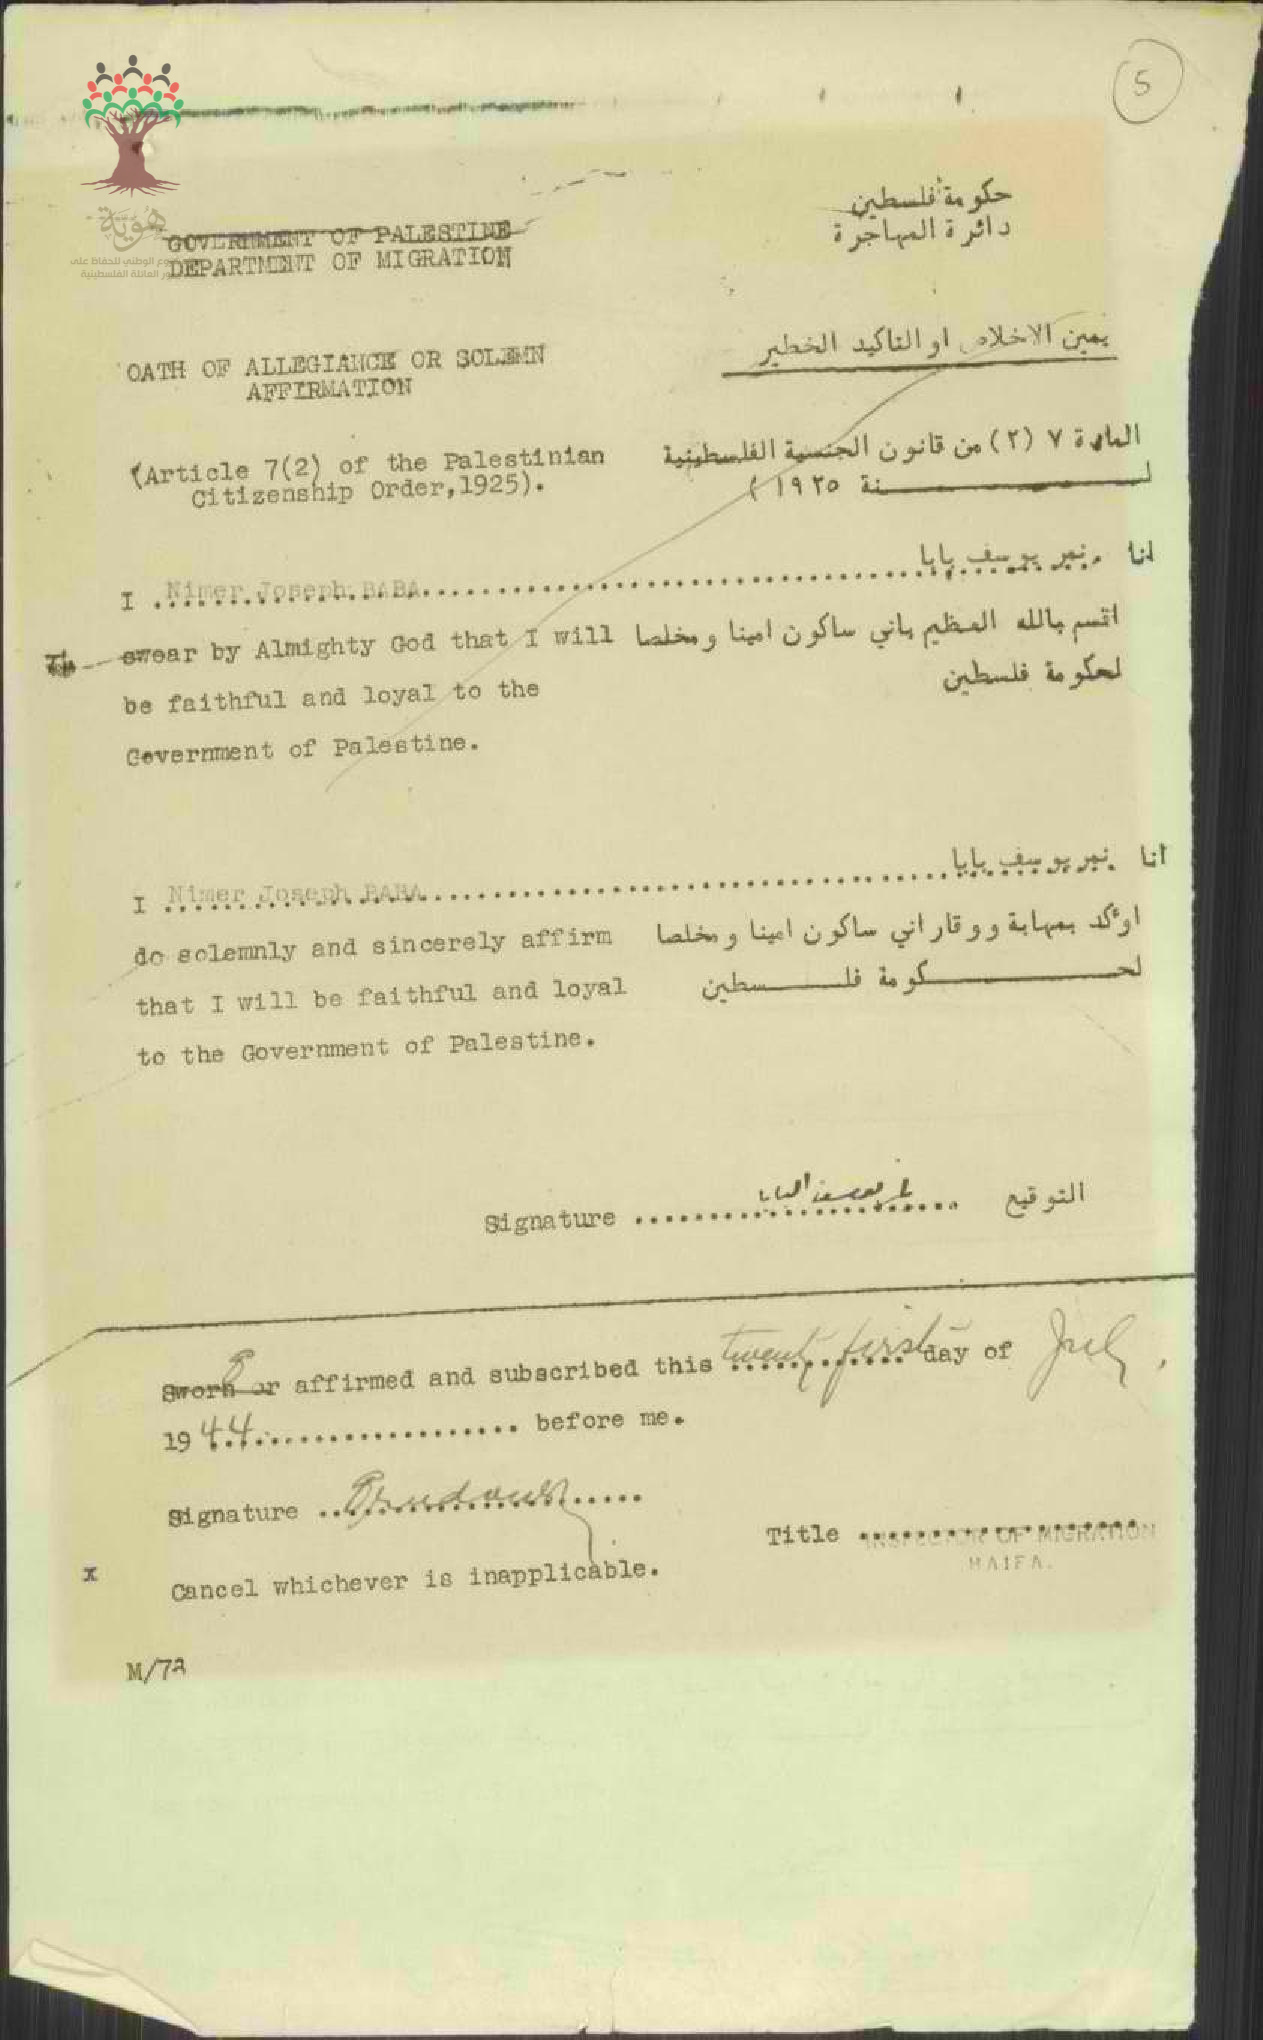 5
هُويّة
GOVERNMENT OF PALESTINE
DEPARTMENT OF MIGRATION
حكومة فلسطين
دائرة المهاجرة
OATH OF ALLEGIANCE OR SOLEMN
AFFIRMATION
يمين الاخلاص او التاكيد الخطير
(Article 7(2) of the Palestinian
Citizenship Order,1925).
المادة ٧ (٢) من قانون الجنسية الفلسطينية
لسنة ١٩٢٥ )
I Nimer Joseph BABA
انا نمر يوسف بابا
swear by Almighty God that I will
be faithful and loyal to the
Government of Palestine.
اقسم بالله العظيم باني ساكون امينا ومخلصا
لحكومة فلسطين
I Nimer Joseph BABA
انا نمر يوسف بابا
do solemnly and sincerely affirm
that I will be faithful and loyal
to the Government of Palestine.
اوٴكد بمهابة ووقار اني ساكون امينا ومخلصا
لحكومة فلسطين
Signature نمر يوسف البابا التوقيع
Sworn or affirmed and subscribed this twenty first day of July,
1944 before me.
Signature
Title INSPECTOR OF MIGRATION
HAIFA.
x Cancel whichever is inapplicable.
M/7a